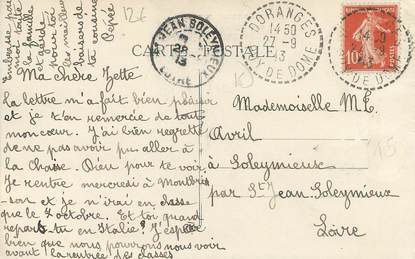 Embrasse pour
moi toute
la famille
et garde
pour toi
les meilleurs
baisers de
ta cousine
126
CARTE POSTALE
ST JEAN SOLEYMIEUX
LOIRE
DORANGES
14 50
-9
13
PUY DE DOME
10
Ma chère Zette
ta lettre m'a fait bien plaisir
et je t'en remercie de tout
mon cœur. J'ai bien regretté
de ne pas avoir pu aller à
la Chaise Dieu pour te voir.
Je rentre mercredi à Montbri-
-son et je n'irai en classe
que le 7 octobre. Et toi quand
repars-tu en Italie? J'espère
bien que nous pourrons nous voir
avant la rentrée des classes
Mademoiselle M.
Avril
à Soleymieux
par St Jean Soleymieux
Loire